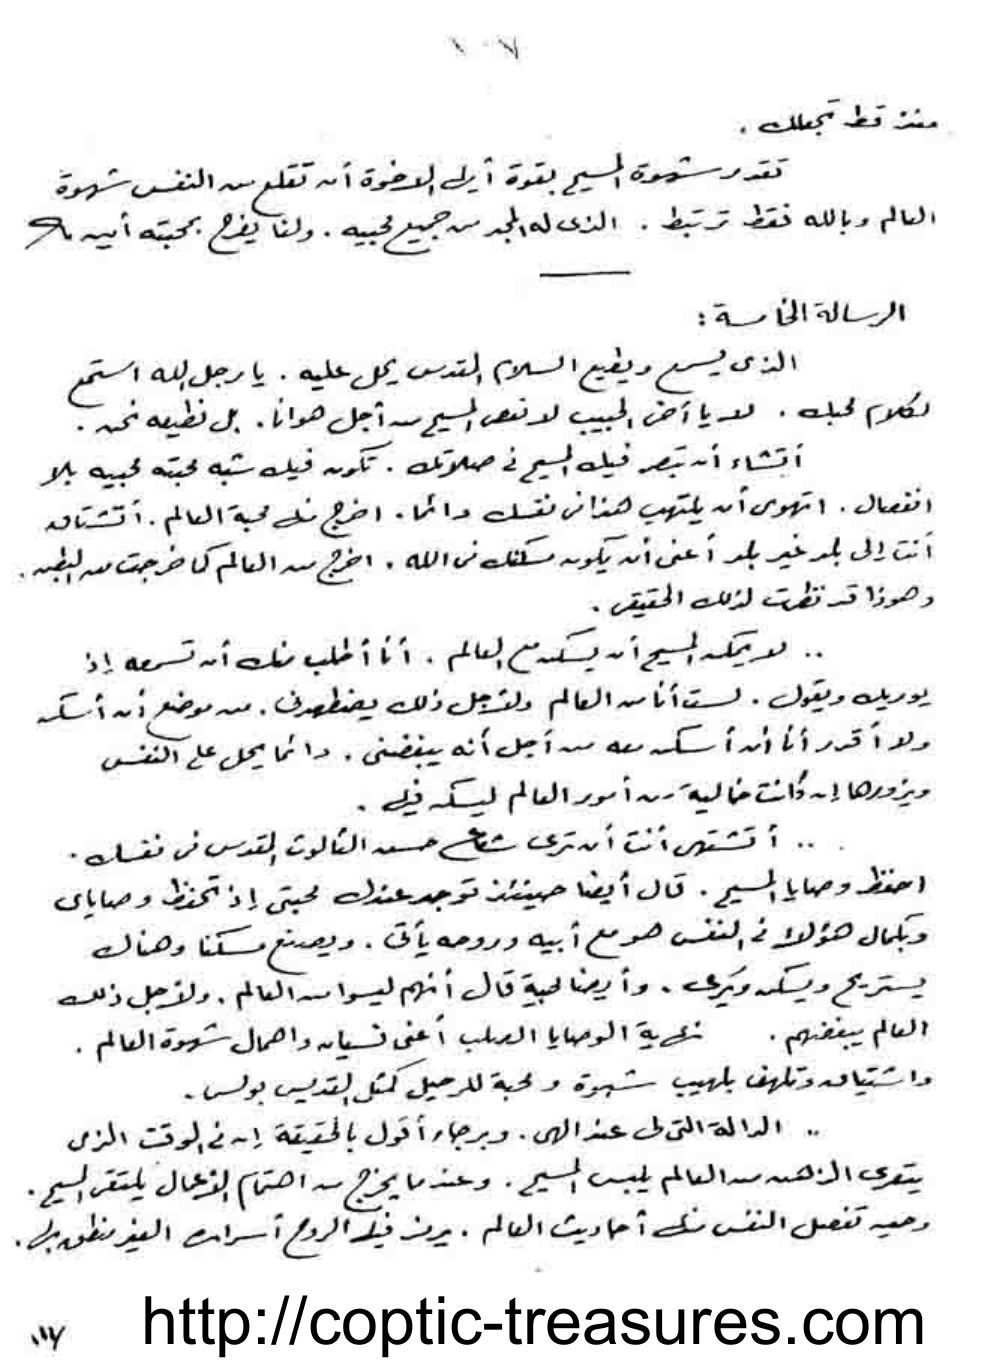 ١٠٧
منذ قط تجعلك .
تقدر شهوة المسيح بقوة أيها الاخوة أن تقلع من النفس شهوة
العالم وبالله فقط ترتبط . الذى له المجد من جميع محبيه . ولنا يفرح بمحبته أمين
الرسالة الخامسة :
الذى يسمع ويطيع السلام المقدس يحل عليه . يا رجل الله استمع
لكلام محبك . لا يا أخى الحبيب لا نعص المسيح من أجل هوانا . بل نطيعه نحن .
أتشاء أن تبصر فيك المسيح فى صلاتك . تكون فيك شبه محبته لمحبيه بلا
انفصال . اتهوى أن يلتهب هذا فى نفسك دائما . اخرج منك محبة العالم . أتشتاق
أنت إلى بلد غير بلد أعنى أن يكون مسكنك فى الله . اخرج من العالم كما خرجت من البطن .
وهوذا قد نظرت لذلك الحقيقى .
.. لا يمكن المسيح أن يسكن مع العالم . أنا أطلب منك أن تسمعه إذ
يوريك ويقول . لست أنا من العالم ولأجل ذلك يضطهدنى . من موضع أن أسكن
ولا أقدر أنا أن أسكن معه من أجل أنه يبغضنى . دائما يحل على النفس
ويزورها إن كانت خالية من أمور العالم ليسكن فيها .
.. أتشتهى أنت أن ترى شعاع حسن الثالوث المقدس فى نفسك .
احفظ وصايا المسيح . قال أيضا حينئذ توجد عندك محبتى إذ تحفظ وصاياى
وبكمال هؤلاء فى النفس هو مع أبيه وروحه يأتى . ويصنع مسكنا وهناك
يستريح ويسكن ويُرى . وأيضا لمحبيه قال أنهم ليسوا من العالم . ولأجل ذلك
العالم يبغضهم . نهاية الوصايا الصلب أعنى نسيان واهمال شهوة العالم .
واشتياق وتلهف بلهيب شهوة ومحبة للرحيل كمثل القديس بولس .
.. الدالة التى لى عند الهى . وبرجاء أقول بالحقيقة إن فى الوقت الذى
يتعرى الذهن من العالم يلبس المسيح . وعندما يخرج من اهتمام الأعمال يلتقى المسيح .
وحين تفصل النفس منك أحاديث العالم . يرنم فيك الروح أسراره الغير منطوق بها .
http://coptic-treasures.com